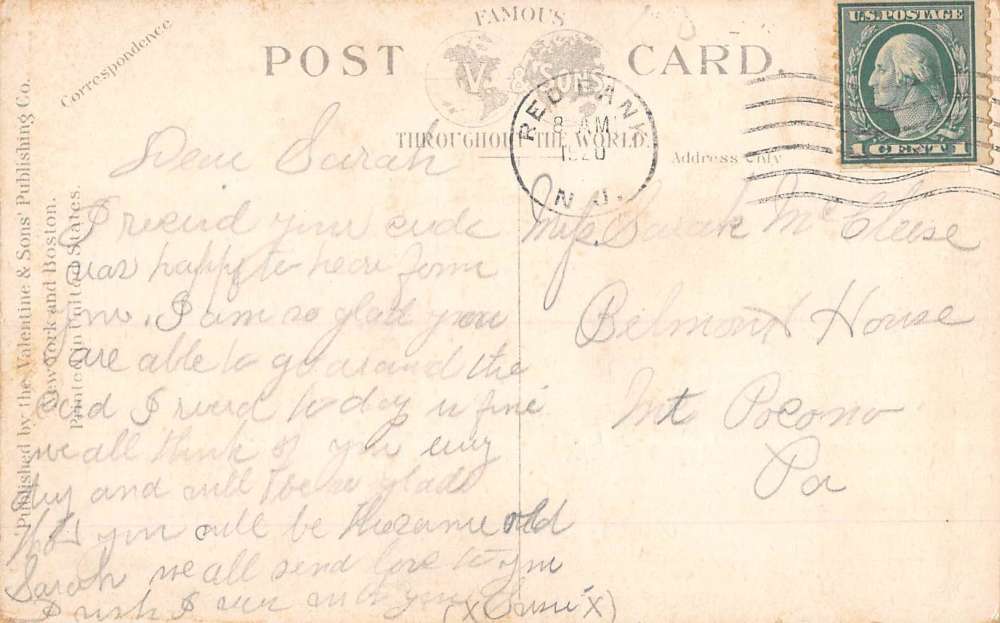 FAMOUS
POST CARD.
V. & SONS
THROUGHOUT THE WORLD.
Correspondence
Address Only
Published by the Valentine & Sons' Publishing Co.
New York and Boston.
Printed in United States.
U.S. POSTAGE
1 CENT 1
RED BANK
8 AM
1920
N.J.
Dear Sarah
I recied your
was happy to hear form
you. I am so glad you
are able to go around the
card I recied to day is fine
we all think of you evry
day and will be so glad
you will be the same old
Sarah we all send love to you
I wish I was with you
Miss. Sarah McCleese
Belmont House
Mt Pocono
Pa